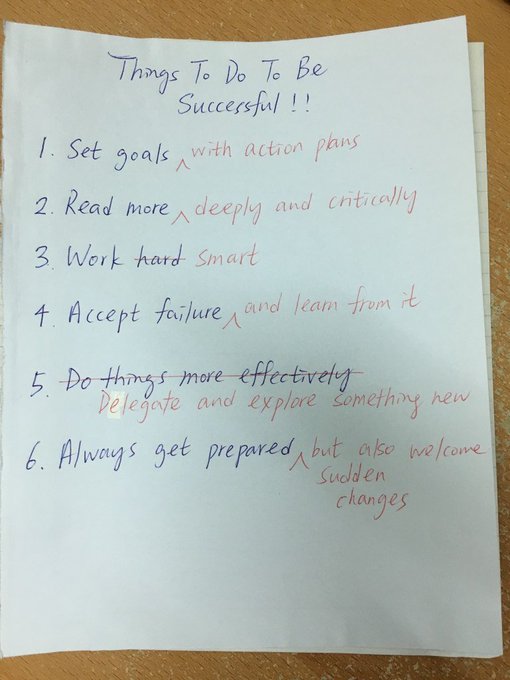 Things To Do To Be
Successful!!
1. Set goals ^ with action plans
2. Read more ^ deeply and critically
3. Work hard smart
4. Accept failure ^ and learn from it
5. Do things more effectively
Delegate and explore something new
6. Always get prepared ^ but also welcome
sudden
changes